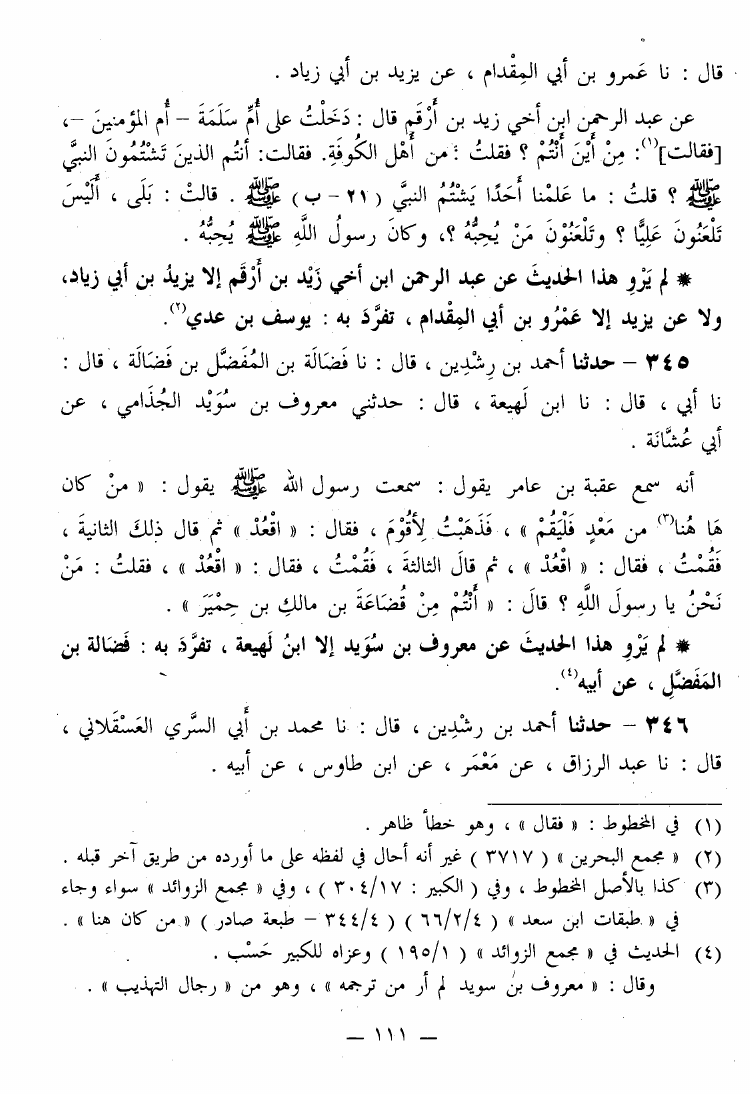 قال : نا عَمرو بن أبي المِقْدام ، عن يزيد بن أبي زياد .
عن عبد الرحمن ابن أخي زيد بن أَرْقَم قال : دَخَلْتُ على أُمِّ سَلَمَةَ – أم المؤمنينَ –،
[فقالت](١): مِنْ أَيْنَ أَنْتُمْ ؟ فقلتُ : من أَهْل الكُوفَةِ. فقالت: أنتُم الذينَ تَشْتُمُونَ النبيَّ
ﷺ ؟ قلتُ : ما عَلمْنا أَحَدًا يَشْتُمُ النبيَّ (٢١ – ب) ﷺ . قالتْ : بَلَى ، أَلَيْسَ
تَلْعَنُونَ عَلِيًّا ؟ وتَلْعَنُوْنَ مَنْ يُحِبُّهُ ؟، وكانَ رسولُ اللَّهِ ﷺ يُحِبُّهُ .
* لم يَرْوِ هذا الحديثَ عن عبد الرحمن ابن أخي زَيْد بن أَرْقَم إلا يزيدُ بن أبي زياد،
ولا عن يزيد إلا عَمْرُو بن أبي المِقْدام ، تفرَّدَ به : يوسف بن عدي(٢).
٣٤٥ – حدثنا أحمد بن رِشْدِين ، قال : نا فَضَالَة بن المُفَضَّل بن فَضَالَة ، قال :
نا أبي ، قال : نا ابن لَهِيعة ، قال : حدثني معروف بن سُوَيْد الجُذَامي ، عن
أبي عُشَّانَة .
أنه سمع عقبة بن عامر يقول : سمعت رسول الله ﷺ يقول : « منْ كان
هَا هُنا(٣) من مَعْدٍ فَلْيَقُمْ » ، فَذَهَبْتُ لِأَقُوْمَ ، فقال : « اقْعُدْ » ثم قال ذلكَ الثانيةَ ،
فَقُمْتُ ، فقال : « اقْعُدْ » ، ثم قالَ الثالثةَ ، فَقُمْتُ ، فقال : « اقْعُدْ » ، فقلتُ : مَنْ
نَحْنُ يا رسولَ اللَّهِ ؟ قالَ : « أَنْتُمْ مِنْ قُضَاعَةَ بن مالكِ بن حِمْيَرَ » .
* لم يَرْوِ هذا الحديثَ عن معروف بن سُوَيد إلا ابنُ لَهِيعة ، تفرَّدَ به : فَضَالة بن
المَفَضَّلِ ، عن أبيه(٤).
٣٤٦ – حدثنا أحمد بن رشْدِين ، قال : نا محمد بن أَبي السَّري العَسْقَلاني ،
قال : نا عبد الرزاق ، عن مَعْمَر ، عن ابن طاوس ، عن أبيه .
(١) في المخطوط : « فقال » ، وهو خطأ ظاهر .
(٢) « مجمع البحرين » ( ٣٧١٧ ) غير أنه أحال في لفظه على ما أورده من طريق آخر قبله .
(٣) كذا بالأصل المخطوط ، وفي ( الكبير : ٣٠٤/١٧ ) ، وفي « مجمع الزوائد » سواء وجاء
في « طبقات ابن سعد » ( ٦٦/٢/٤ ) ( ٣٤٤/٤ – طبعة صادر ) « من كان هنا » .
(٤) الحديث في « مجمع الزوائد » ( ١٩٥/١ ) وعزاه للكبير حَسْب .
وقال : « معروف بن سويد لم أر من ترجمه » ، وهو من « رجال التهذيب » .
– ١١١ –